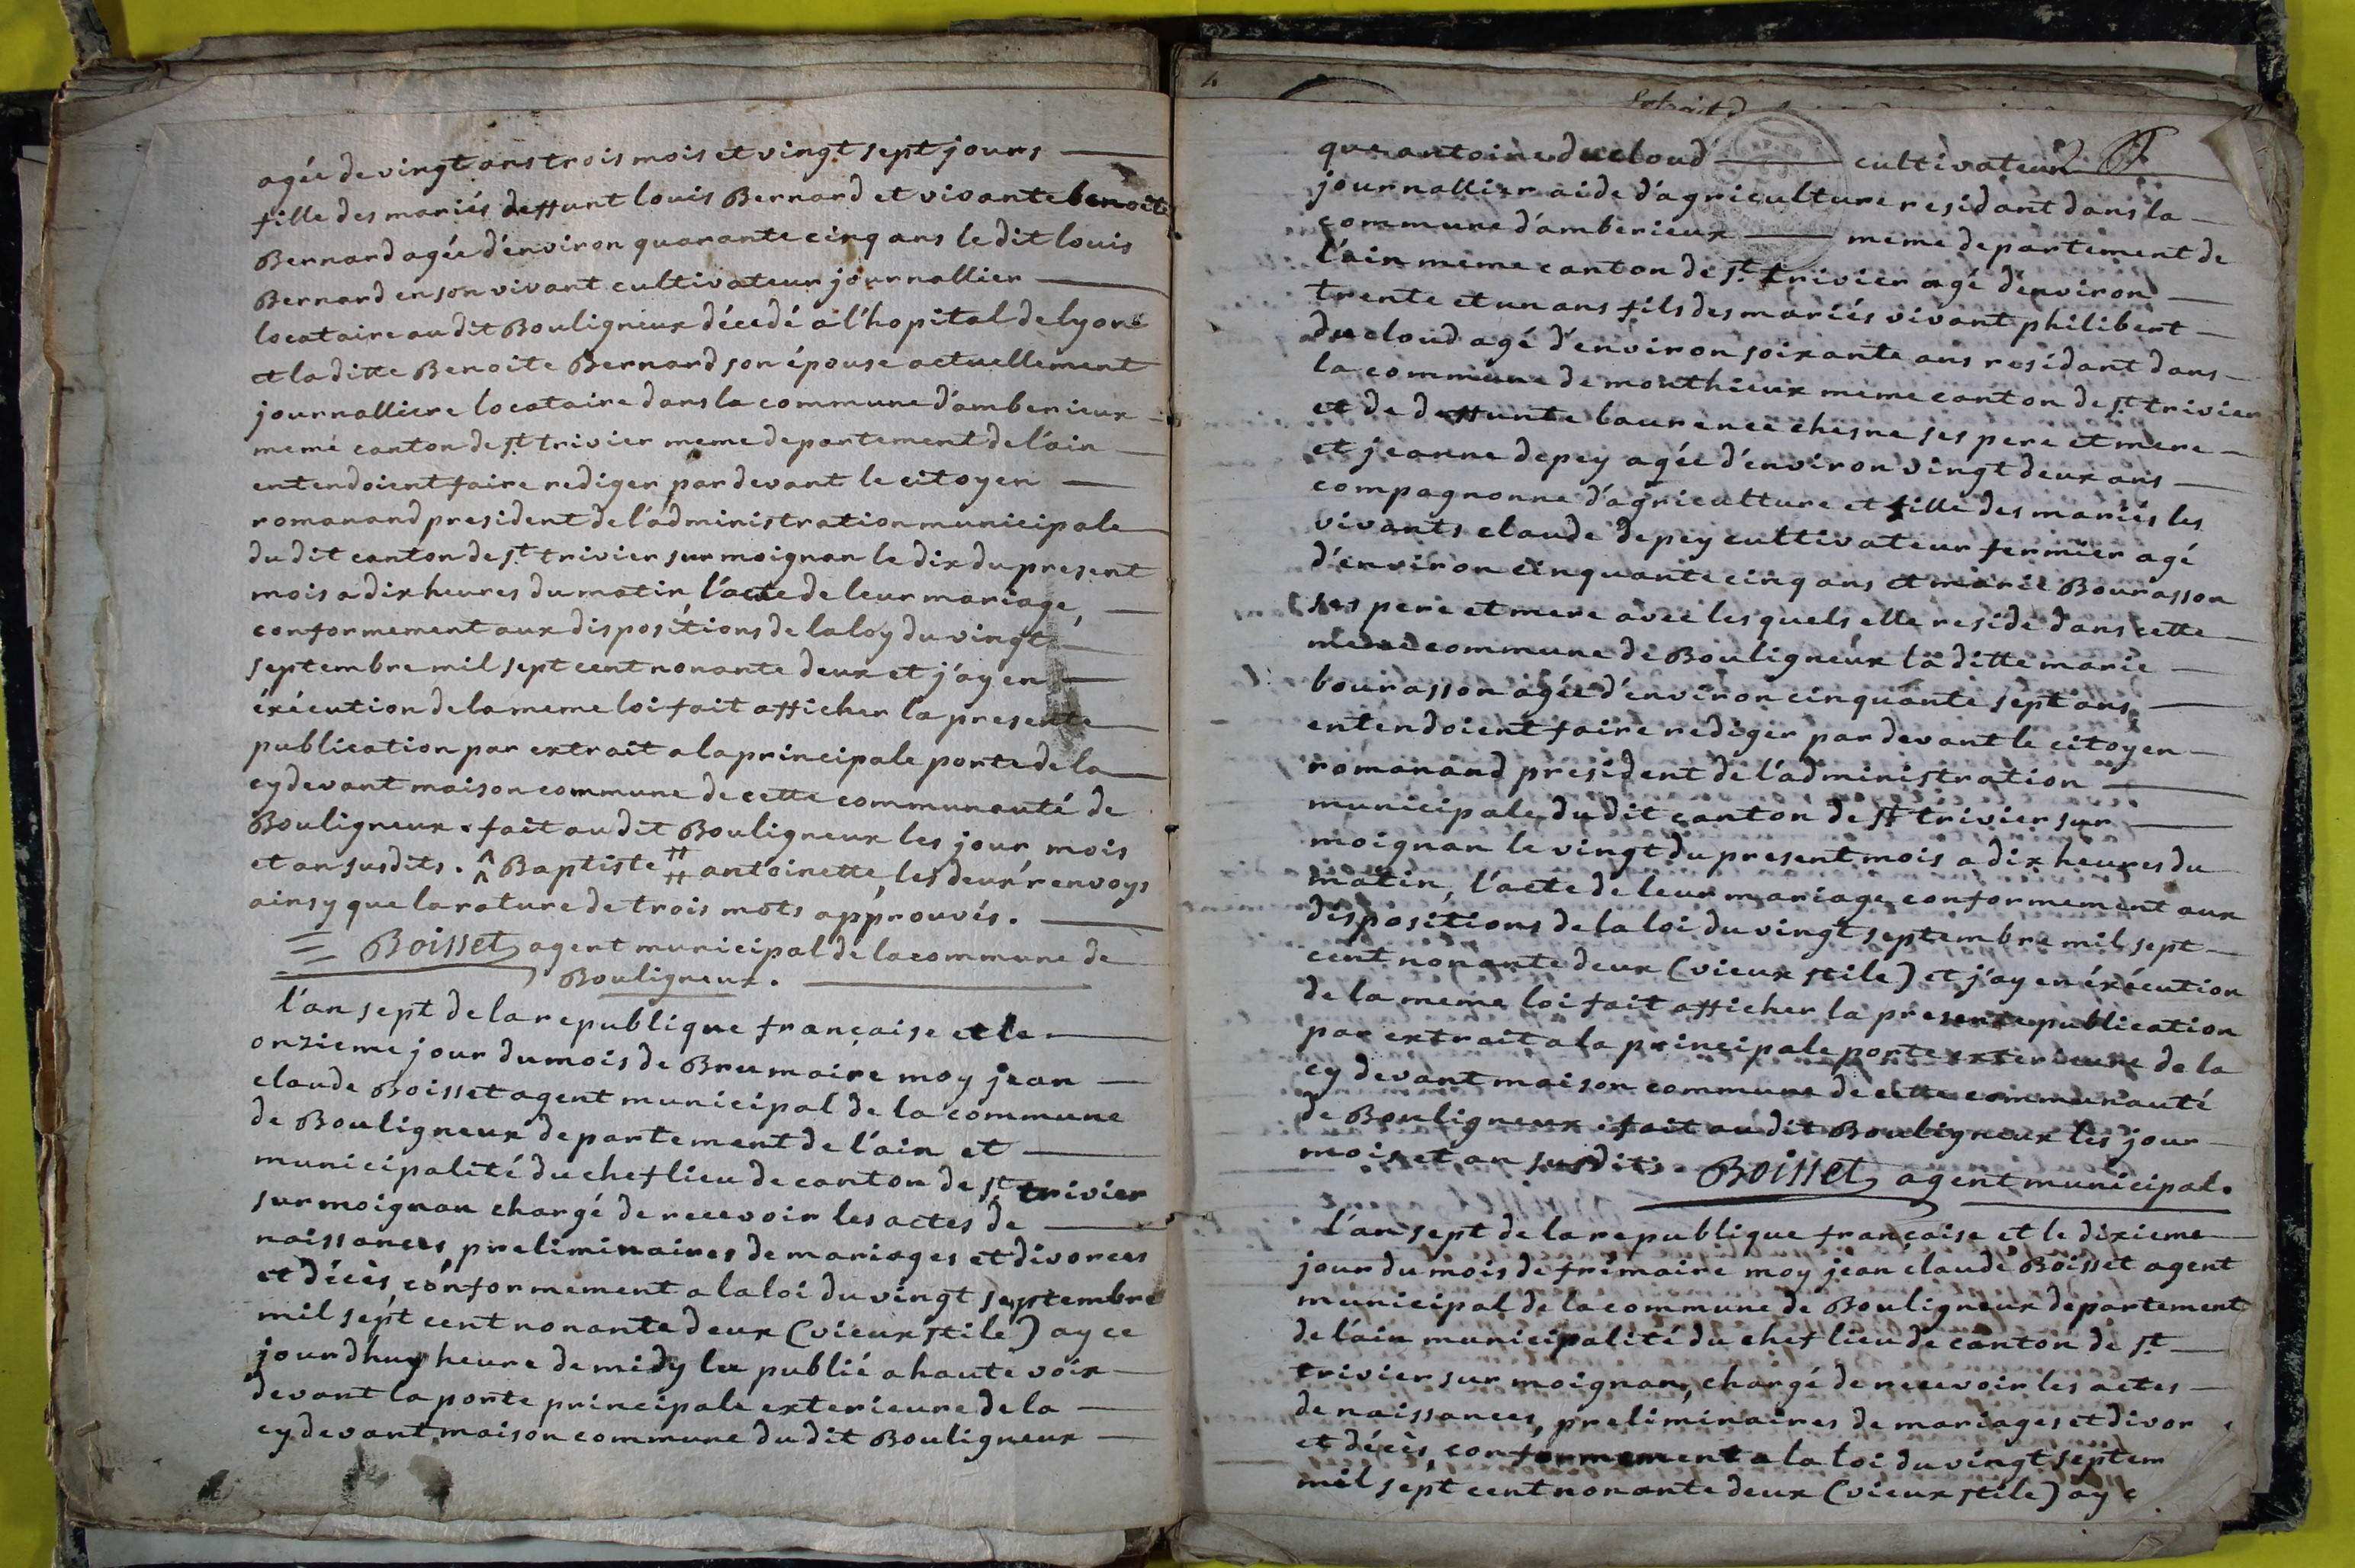 agée de vingt ans trois mois et vingt sept jours
fille des mariés deffunt louis Bernard et vivante benoite
Bernard agée d'environ quarante cinq ans le dit louis
Bernard en son vivant cultivateur journallier
locataire au dit Bouligneux décedé a l'hopital de lyon
et la ditte Benoite Bernard son épouse actuellement
journalliere locataire dans la commune d'amberieux
meme canton de st trivier meme departement de l'ain
entendoient faire rediger par devant le citoyen
romanand president de l'administration municipale
du dit canton de st trivier sur moignan le dix du present
mois a dix heures du matin, l'acte de leur mariage,
conformement aux dispositions de la loy du vingt
septembre mil sept cent nonante deux et j'ay en
éxécution de la meme loi fait afficher la presente
publication par extrait a la principale porte de la
cy devant maison commune de cette communauté de
Bouligneux. fait au dit Bouligneux les jour mois
et an susdits. ^^ Baptiste # antoinette, les deux renvoys
ainsy que la rature de trois mots approuvés.
Boisset agent municipal de la commune de
Bouligneux.
l'an sept de la republique française et le
onzieme jour du mois de Brumaire moy jean
claude Boisset agent municipal de la commune
de Bouligneux departement de l'ain et
municipalité du chef lieu de canton de st trivier
sur moignan chargé de recevoir les actes de
naissances, preliminaires de mariages et divorces
et décès, conformement a la loi du vingt septembre
mil sept cent nonante deux (vieux stile) ay ce
jourdhuy heure de midy lu publié a haute voix
devant la porte principale exterieure de la
cy devant maison commune du dit Bouligneux
que antoine ducloud cultivateur
journallier aide d'agriculture residant dans la
commune d'amberieux meme departement de
l'ain meme canton de st trivier agé d'environ
trente et un ans fils des mariés vivant philibert
ducloud agé d'environ soixante ans residant dans
la commune de monthieux meme canton de st trivier
et de deffunte laurence chesne ses pere et mere
et jeanne depey agée d'environ vingt deux ans
compagnonne d'agriculture et fille des mariés les
vivants claude depey cultivateur fermier agé
d'environ cinquante cinq ans et marie Bourasson
ses pere et mere avec les quels elle reside dans cette
meme commune de Bouligneux la ditte marie
bourasson agée d'environ cinquante sept ans,
entendoient faire rediger par devant le citoyen
romanand president de l'administration
municipale du dit canton de st trivier sur
moignan le vingt du present mois a dix heures du
matin, l'acte de leur mariage conformement aux
dispositions de la loi du vingt septembre mil sept
cent nonante deux (vieux stile) et j'ay en éxécution
de la meme loi fait afficher la presente publication
par extrait a la principale porte exterieure de la
cy devant maison commune de cette communauté
de Bouligneux. fait au dit Bouligneux les jour
mois et an susdits. Boisset agent municipal.
l'an sept de la republique française et le dixieme
jour du mois de frimaire moy jean claude Boisset agent
municipal de la commune de Bouligneux departement
de l'ain municipalité du chef lieu de canton de st
trivier sur moignan, chargé de recevoir les actes
de naissances, preliminaires de mariages et divor
et décès, conformement a la loi du vingt septem
mil sept cent nonante deux (vieux stile) ay c